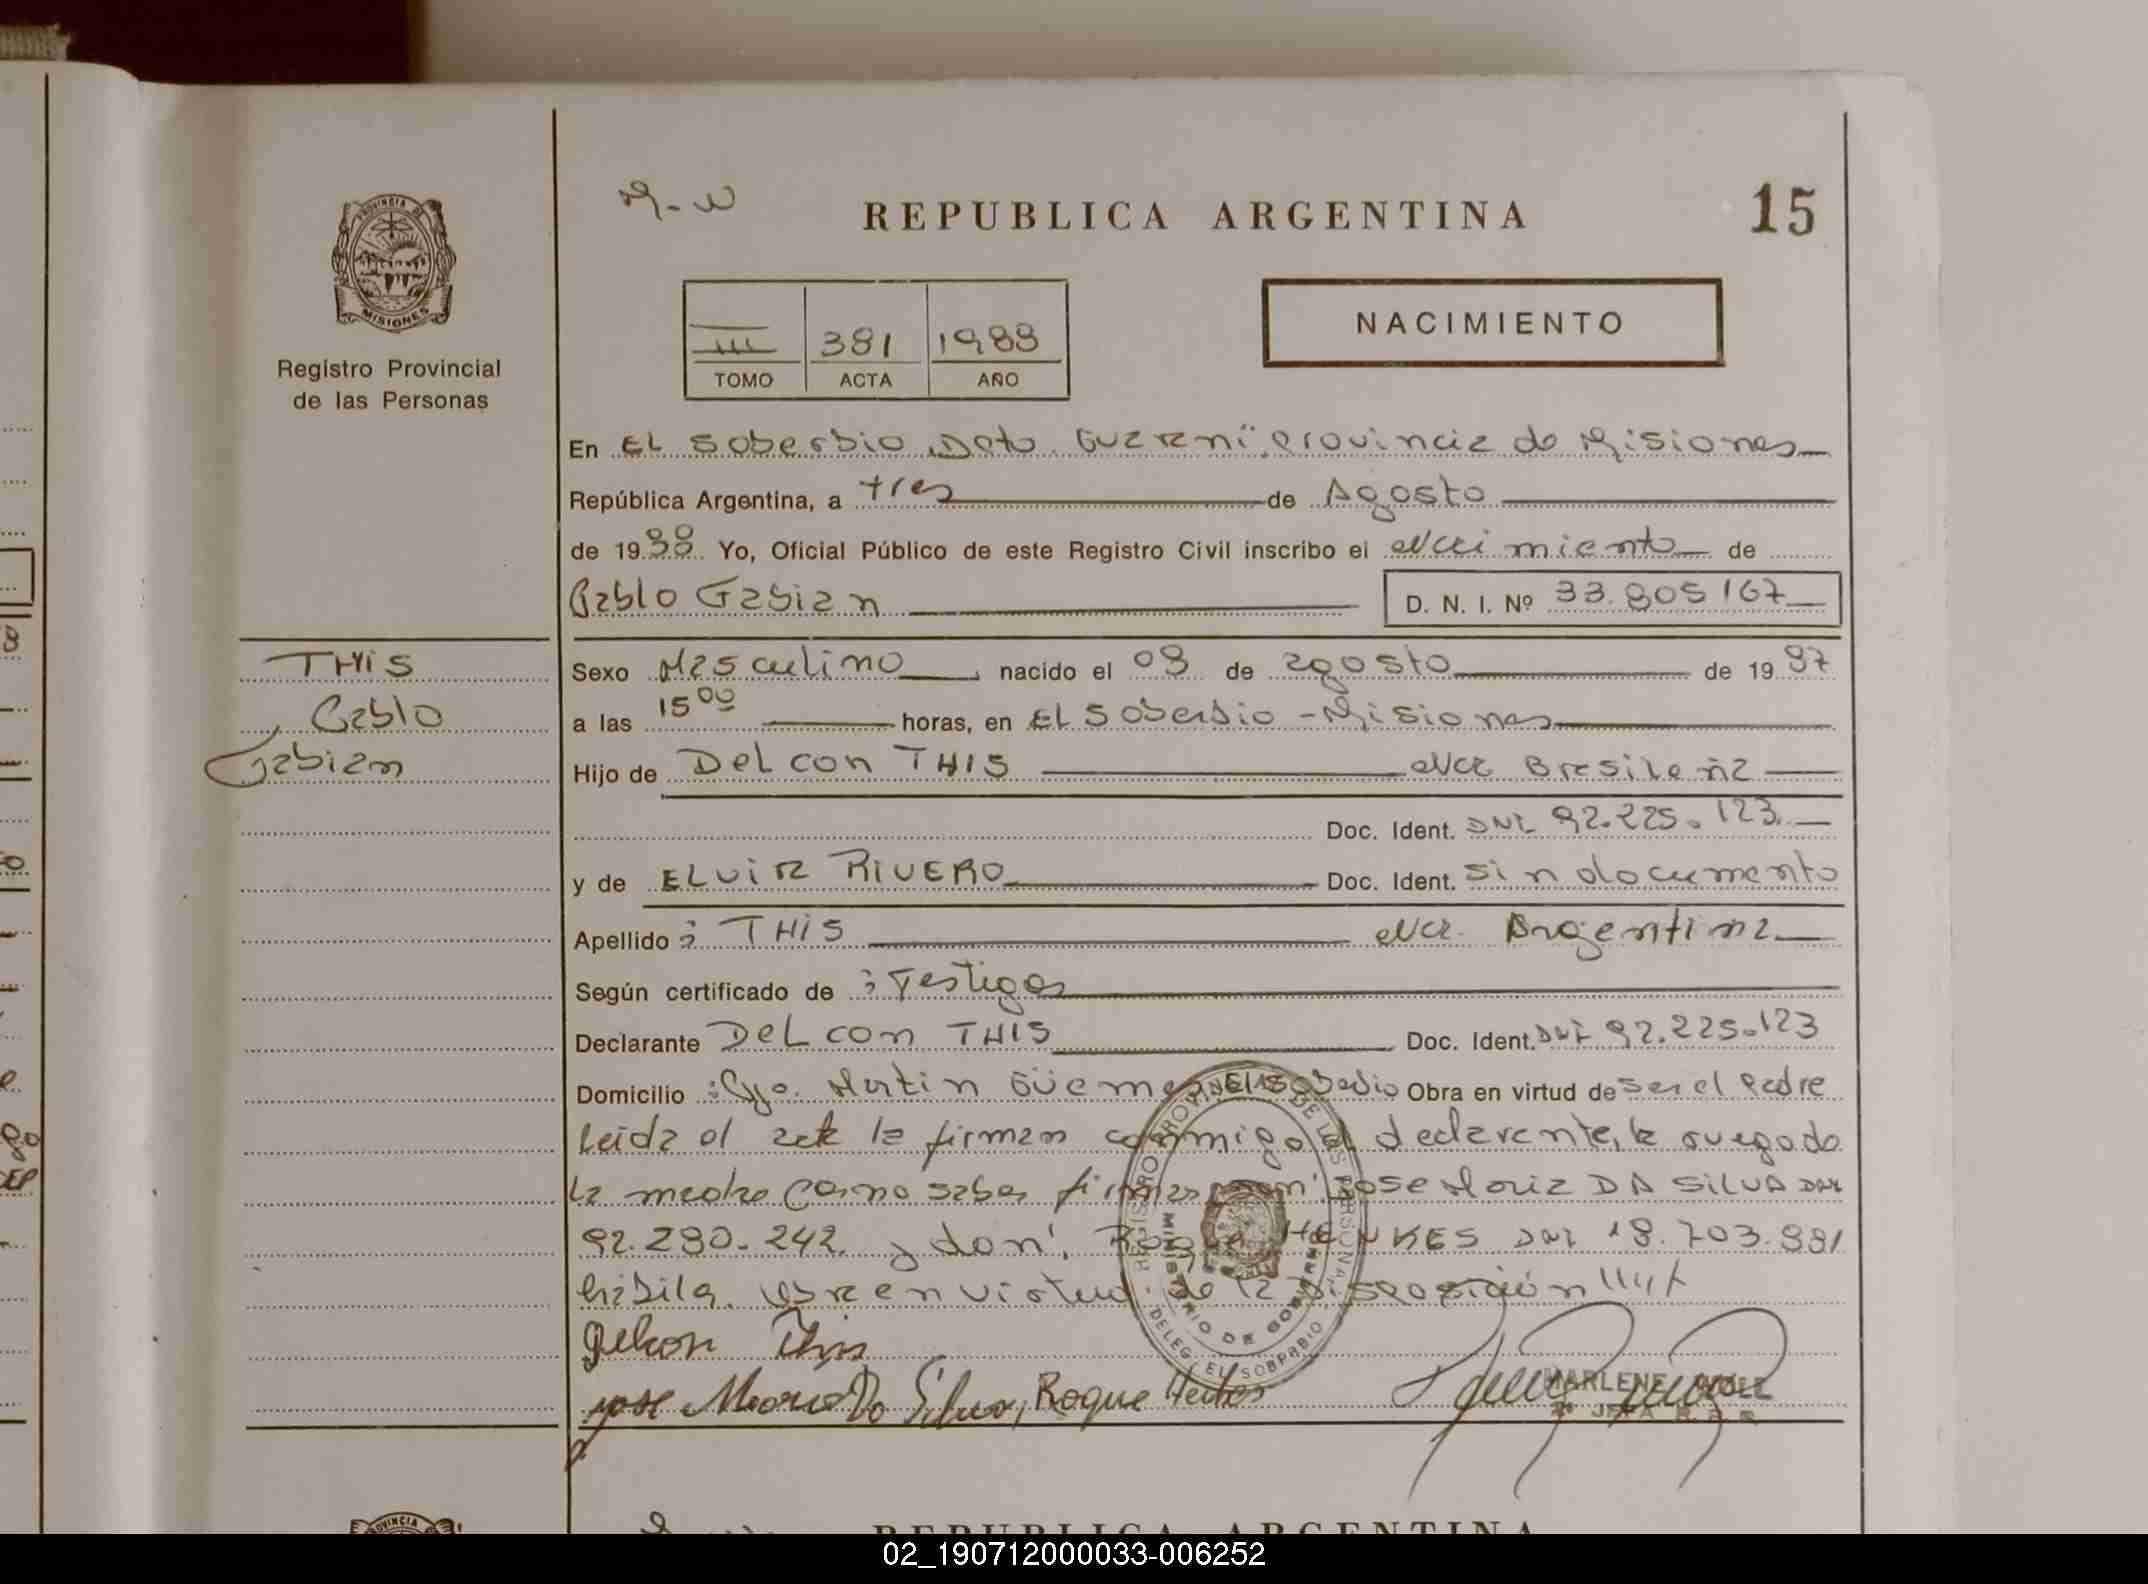 M-W
REPUBLICA ARGENTINA
15
PROVINCIA DE
MISIONES
Registro Provincial
de las Personas
III 381 1988
TOMO ACTA AÑO
NACIMIENTO
En EL Soberbio, Dpto. Guarani Provincia de Misiones
República Argentina, a tres de Agosto
de 1988 Yo, Oficial Público de este Registro Civil inscribo el Nacimiento de
Pablo Fabian D. N. I. Nº 33.805167
THIS
Pablo
Fabian
Sexo Masculino nacido el 08 de agosto de 1987
a las 15 00 horas, en EL Soberbio - Misiones
Hijo de Delcon THIS Nac Brasileña
Doc. Ident. DNI 92.225.123
y de ELVIRA RIVERO Doc. Ident. Sin documento
Apellido : THIS Nac. Argentina
Según certificado de : Testigos
Declarante Delcon THIS Doc. Ident. DNI 92.225.123
Domicilio : Martin Güemes EL Soberbio Obra en virtud de Ser el Padre
Leida el acta la firman conmigo el declarante, a ruego de
la madre no saber firmar don José Maria DA SILVA DNI
92.280.242 y don Roque HENKES DNI 18.703.881
habiles. obra en virtud de la Disposición
REGISTRO PROVINCIAL DE LAS PERSONAS
MINISTERIO DE GOBIERNO
DELEG. EL SOBERBIO
Delcon This
jose Maria Da Silva, Roque Henkes
MARLENE
2º JEFA R. P. P.
PROVINCIA
REPUBLICA ARGENTINA
02_190712000033-006252